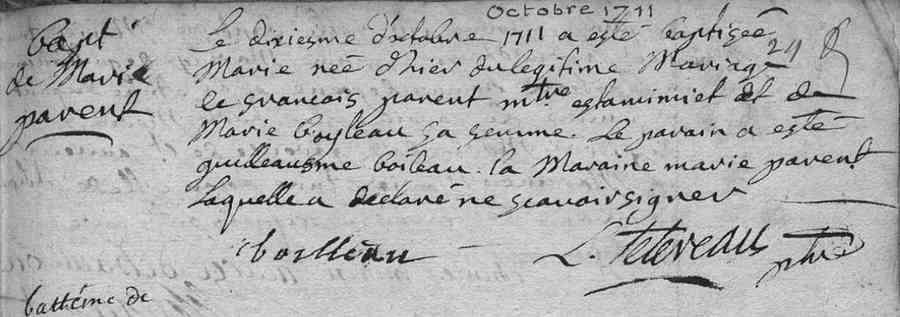 Octobre 1711
bapt
de Marie
parent
Le dixiesme d'octobre 1711 a esté baptiseé
Marie neé d'hier du legitime Mariage
24
de francois parent mtre estaminiet et de
Marie boyleau sa femme. Le parain a esté
guilleausme boileau. la Maraine marie parent
laquelle a declaré ne scavoir signer
boilleau
L. Letereau ptre
battéme de